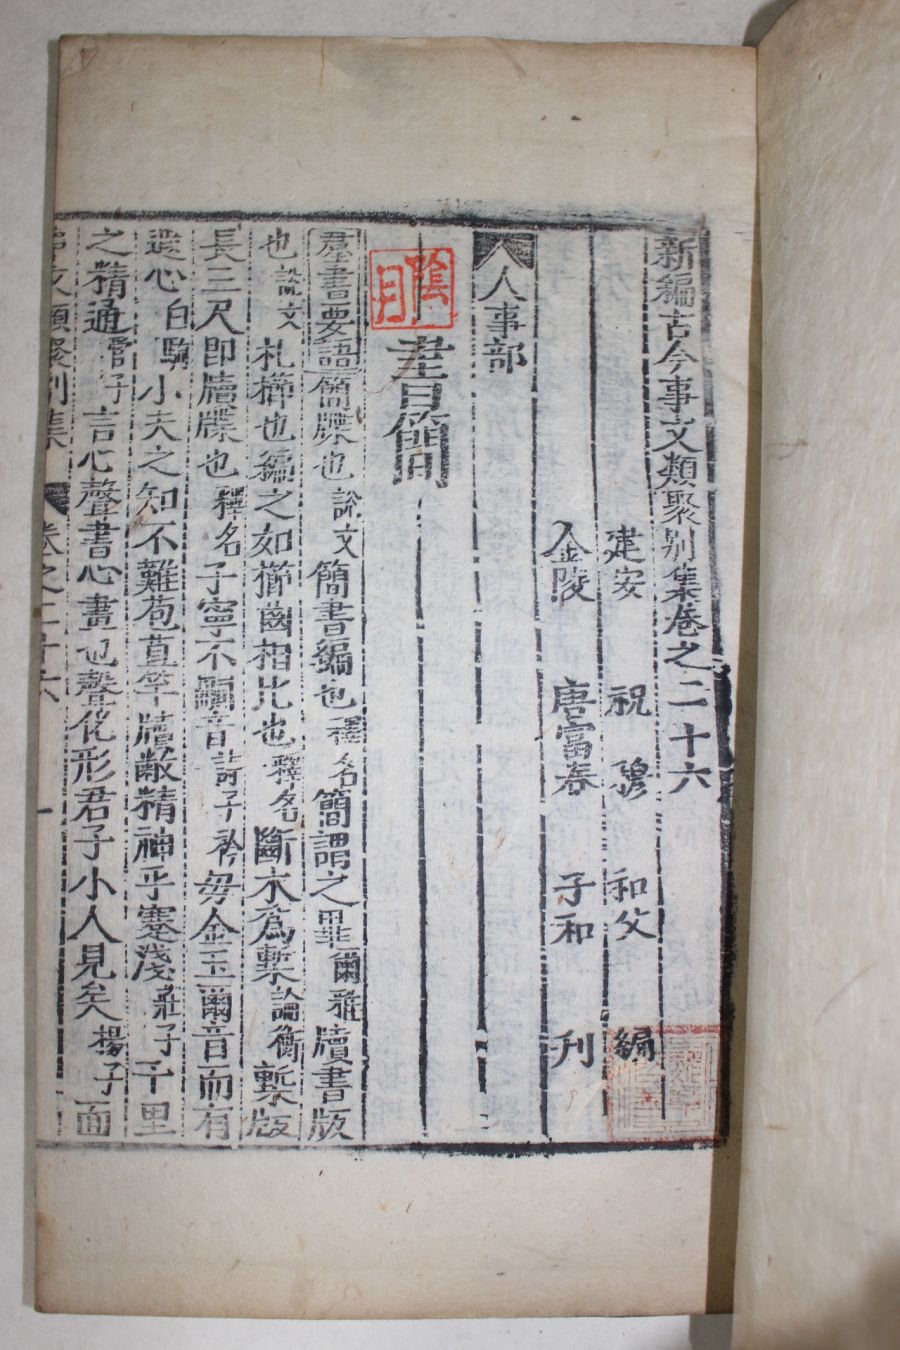 新編古今事文類聚別集卷之二十六
建安 祝 穆 和父 編
金陵 唐富春 子和 刋
人事部
書簡
羣書要語簡牒也說文簡書編也釋名簡謂之畢爾雅牘書版
也說文札櫛也編之如櫛齒相比也釋名斷木爲槧論衡槧版
長三尺即牘牒也釋名子寧不嗣音詩子衿毋金玉爾音而有
遐心白駒小夫之知不離苞苴竿牘敝精神乎蹇淺莊子千里
之精通管子言心聲書心畫也聲化形君子小人見矣楊子面
事文類聚別集 卷之二十六 一
陰月